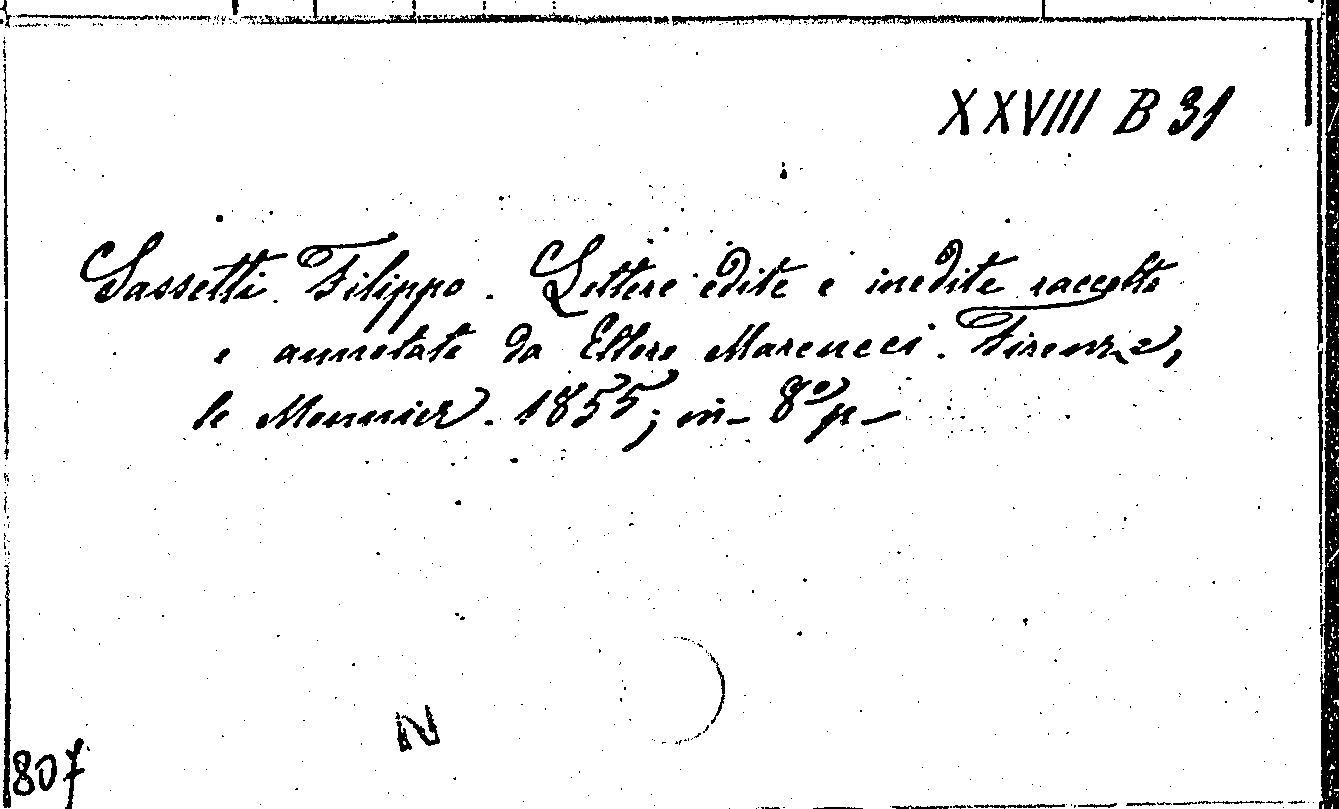 XXVIII B 31
Sassetti Filippo. Lettere edite e inedite raccolte
e annotate da Ettore Marcucci. Firenze,
le Monnier. 1855; in-8º p-
N
807